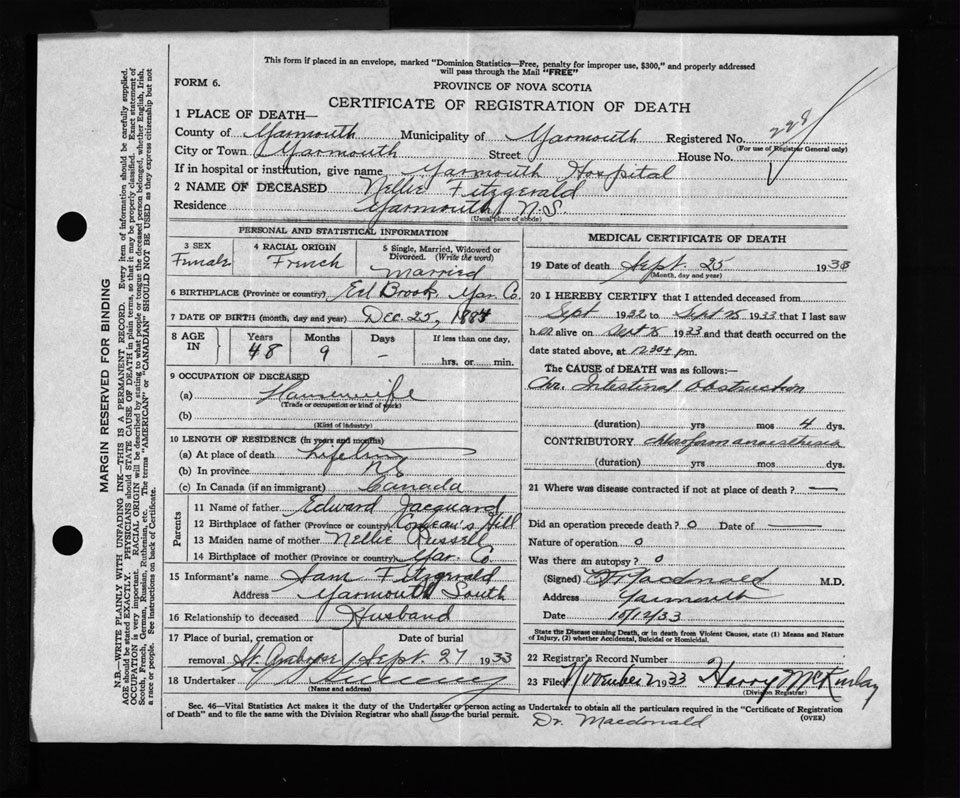 This form if placed in an envelope, marked "Dominion Statistics—Free, penalty for improper use, $300," and properly addressed
will pass through the Mail "FREE"
FORM 6.
PROVINCE OF NOVA SCOTIA
CERTIFICATE OF REGISTRATION OF DEATH
1 PLACE OF DEATH—
County of Yarmouth Municipality of Yarmouth Registered No. 228
(For use of Registrar General only)
City or Town Yarmouth Street House No.
If in hospital or institution, give name Yarmouth Hospital
2 NAME OF DECEASED Nellie Fitzgerald
Residence Yarmouth N.S.
(Usual place of abode)
PERSONAL AND STATISTICAL INFORMATION
3 SEX Female
4 RACIAL ORIGIN French
5 Single, Married, Widowed or Divorced. (Write the word) Married
6 BIRTHPLACE (Province or country) Eel Brook, Yar. Co.
7 DATE OF BIRTH (month, day and year) Dec. 25, 1884
8 AGE IN Years 48 Months 9 Days – If less than one day, hrs. or min.
9 OCCUPATION OF DECEASED
(a) Housewife
(Trade or occupation or kind of work)
(b)
(Kind of industry)
10 LENGTH OF RESIDENCE (in years and months)
(a) At place of death Lifetime
(b) In province NS
(c) In Canada (if an immigrant) Canada
Parents
11 Name of father Edward Jacquard
12 Birthplace of father (Province or country) Comeau's Hill
13 Maiden name of mother Nellie Russell
14 Birthplace of mother (Province or country) Yar. Co.
15 Informant's name Sam Fitzgerald
Address Yarmouth South
16 Relationship to deceased Husband
17 Place of burial, cremation or Date of burial
removal St. Ambrose Sept. 27 1933
18 Undertaker
(Name and address)
MEDICAL CERTIFICATE OF DEATH
19 Date of death Sept. 25 1933
(Month, day and year)
20 I HEREBY CERTIFY that I attended deceased from
Sept 1932 to Sept 25 1933 that I last saw
h er alive on Sept 25 1933 and that death occurred on
date stated above, at 12.30 pm.
The CAUSE of DEATH was as follows:
Chr. Intestinal Obstruction
(duration) yrs mos 4 dys.
CONTRIBUTORY chloroform anaesthesia
(duration) yrs mos dys.
21 Where was disease contracted if not at place of death? —
Did an operation precede death? 0 Date of —
Nature of operation 0
Was there an autopsy? 0
(Signed) Macdonald M.D.
Address Yarmouth
Date 10/12/33
State the Disease causing Death, or in death from Violent Causes, state (1) Means and Nature
of Injury, (2) whether Accidental, Suicidal or Homicidal.
22 Registrar's Record Number
23 Filed November 2 1933 Harry McKinlay
(Division Registrar)
Sec. 46—Vital Statistics Act makes it the duty of the Undertaker or person acting as Undertaker to obtain all the particulars required in the "Certificate of Registration
of Death" and to file the same with the Division Registrar who shall issue the burial permit.
(OVER)
Dr. Macdonald
MARGIN RESERVED FOR BINDING
N.B.—WRITE PLAINLY WITH UNFADING INK—THIS IS A PERMANENT RECORD. Every item of information should be carefully supplied.
AGE should be stated EXACTLY. PHYSICIANS should STATE CAUSE OF DEATH in plain terms, so that it may be properly classified. Exact statement of
OCCUPATION is very important. RACIAL ORIGIN will be described by stating to what people or tongue the deceased person belonged, whether English, Irish,
Scotch, French, German, Russian, Ruthenian, etc. The terms "AMERICAN" or "CANADIAN" SHOULD NOT BE USED as they express citizenship but not
a race or people. See instructions on back of Certificate.